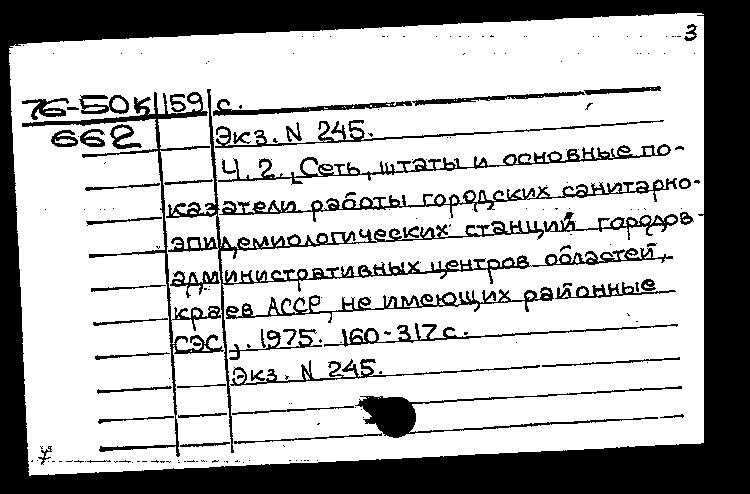 3
76-50к 159 с.
662 Экз. N 245.
Ч. 2. [Сеть, штаты и основные по-
казатели работы городских санитарно-
эпидемиологических станций городов-
административных центров областей,
краев АССР, не имеющих районные
СЭС]. 1975. 160-317 с.
Экз. N 245.